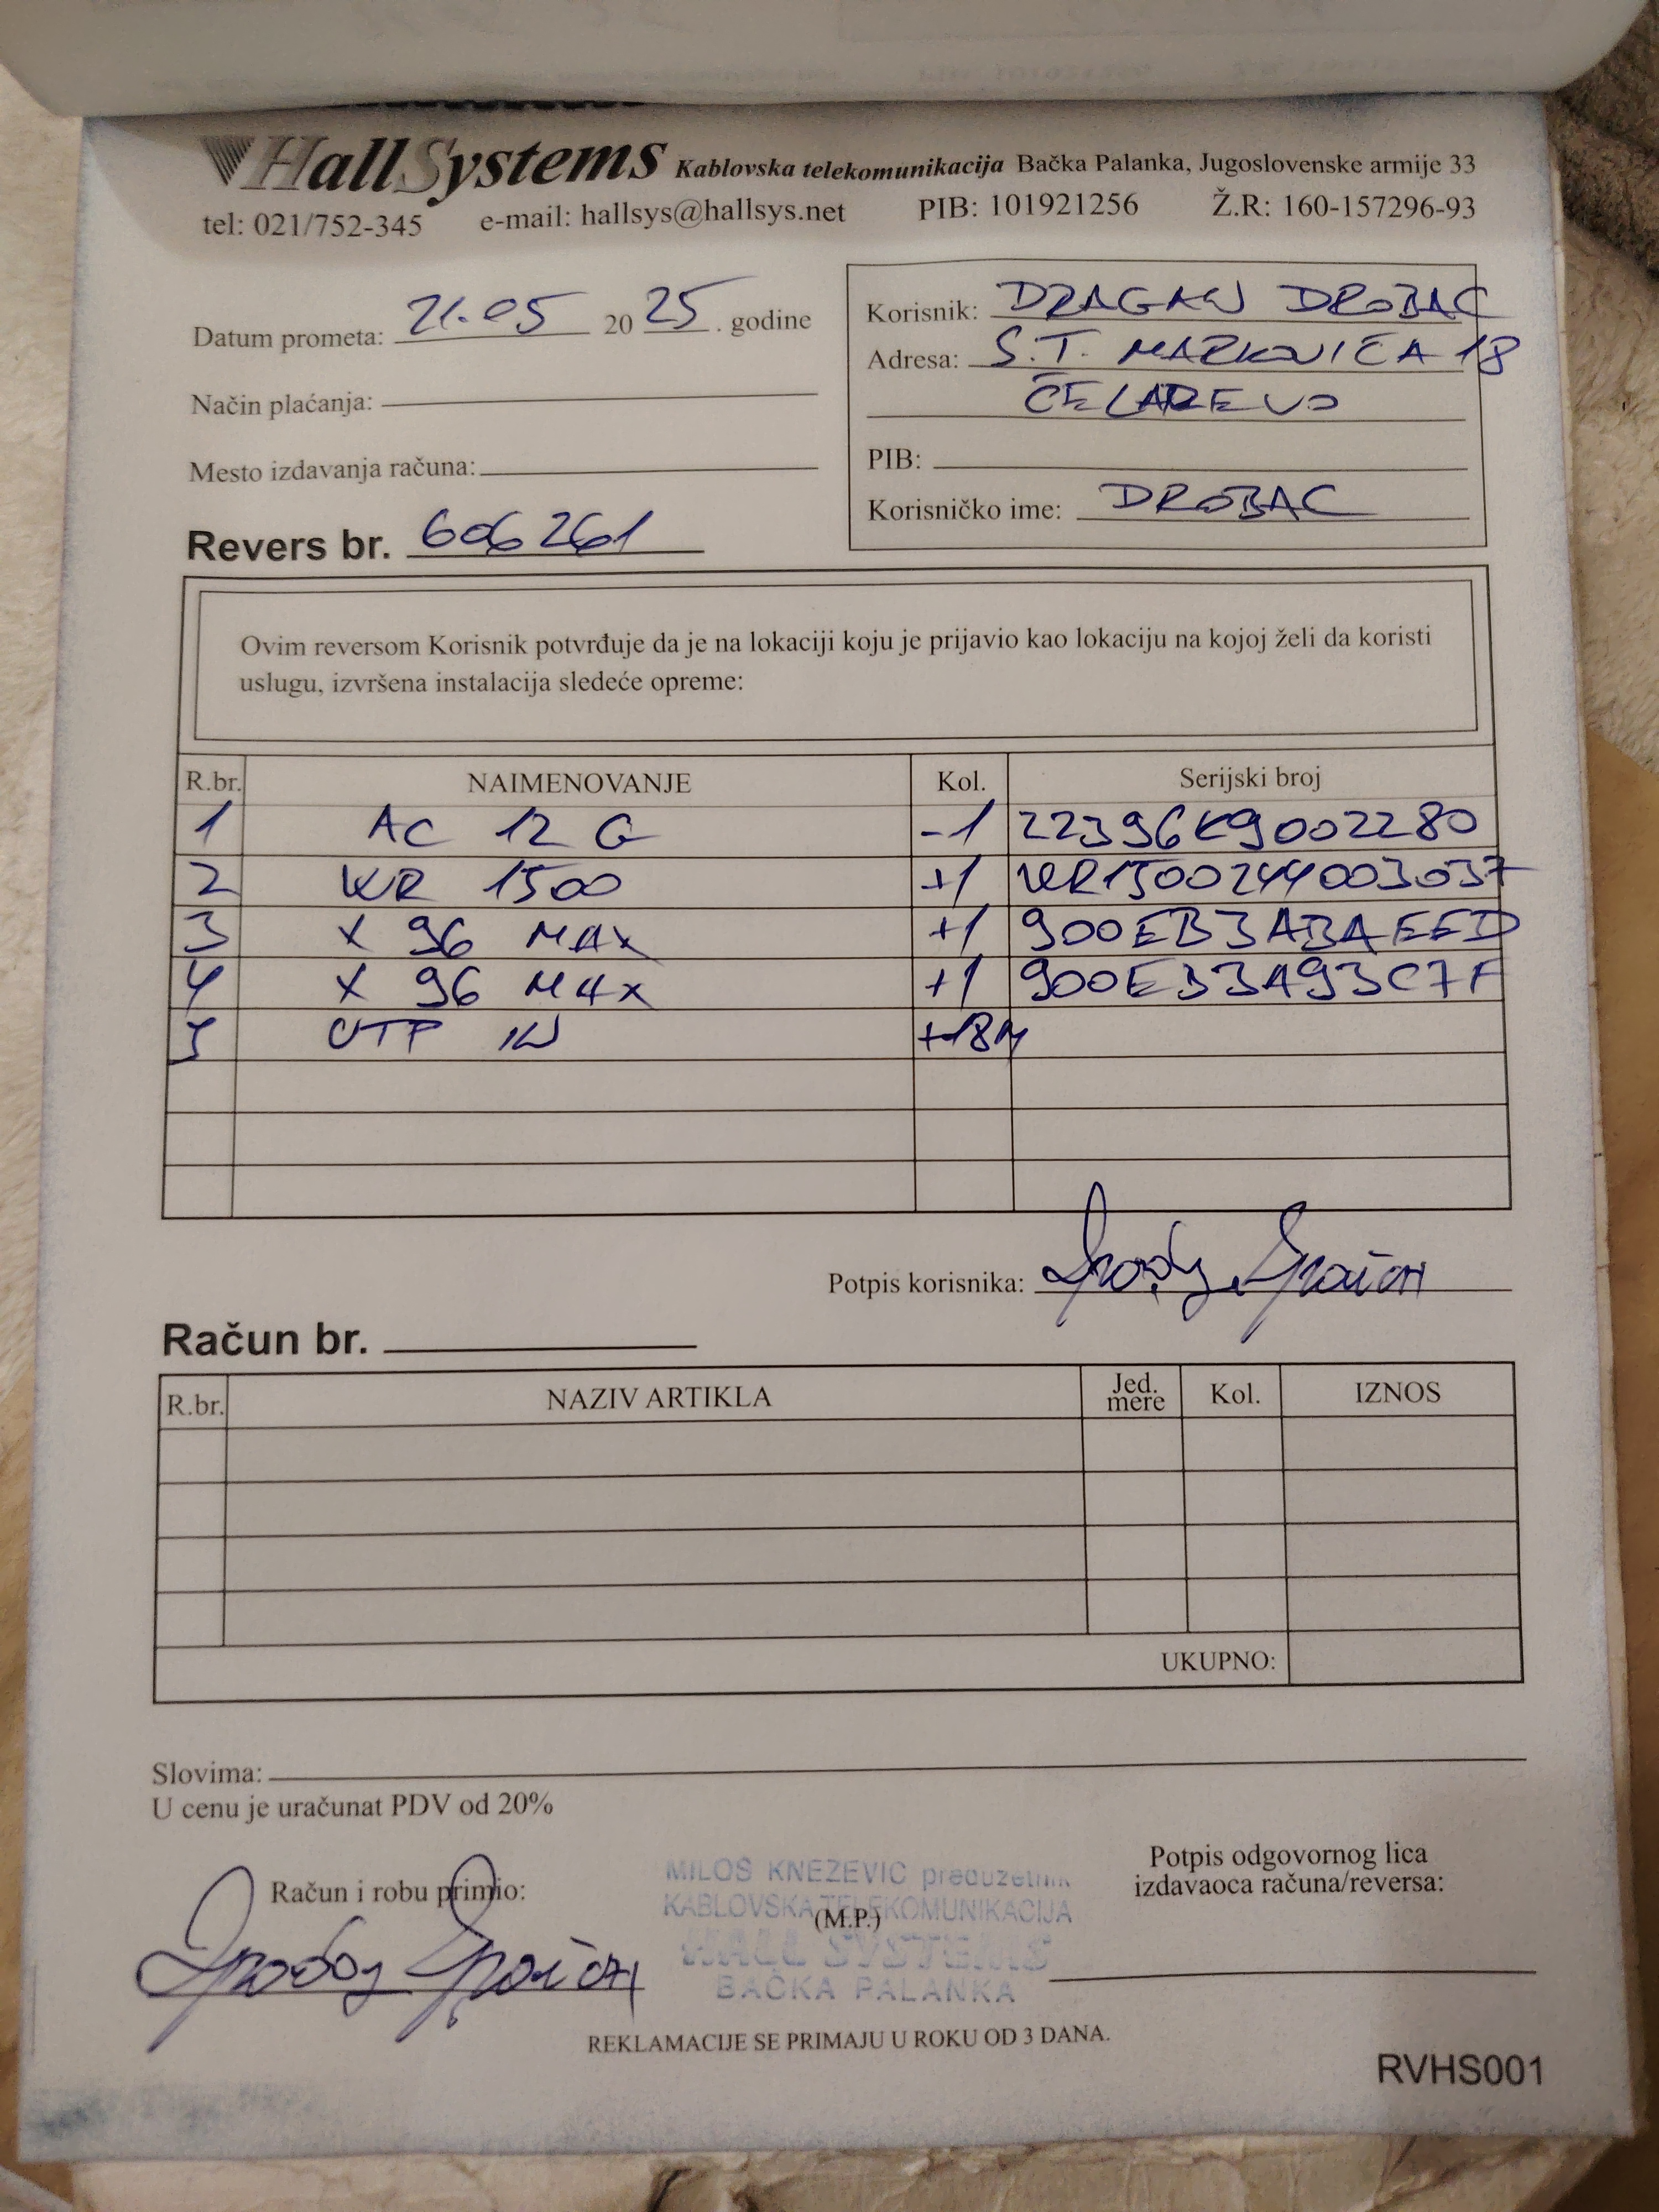 HallSystems Kablovska telekomunikacija Bačka Palanka, Jugoslovenske armije 33
tel: 021/752-345 e-mail: hallsys@hallsys.net PIB: 101921256 Ž.R: 160-157296-93
Datum prometa: 21.05 2025. godine
Način plaćanja:
Mesto izdavanja računa:
Revers br. 606261
Korisnik: DRAGAN DROBAC
Adresa: S.T. MARKOVIĆA 18
ČELAREVO
PIB:
Korisničko ime: DROBAC
Ovim reversom Korisnik potvrđuje da je na lokaciji koju je prijavio kao lokaciju na kojoj želi da koristi
uslugu, izvršena instalacija sledeće opreme:
R.br. NAIMENOVANJE Kol. Serijski broj
1 AC 12 G -1 22396K9002280
2 WR 1500 +1 WR1500244003037
3 X 96 MAX +1 900EB3ABAEED
4 X 96 MAX +1 900EB3A93C7F
5 UTP IN +18M
Potpis korisnika:
Račun br.
R.br. NAZIV ARTIKLA Jed. mere Kol. IZNOS
UKUPNO:
Slovima:
U cenu je uračunat PDV od 20%
Račun i robu primio:
MILOŠ KNEŽEVIĆ preduzetnik
KABLOVSKA TELEKOMUNIKACIJA
(M.P.)
HALL SYSTEMS
BAČKA PALANKA
Potpis odgovornog lica
izdavaoca računa/reversa:
REKLAMACIJE SE PRIMAJU U ROKU OD 3 DANA.
RVHS001